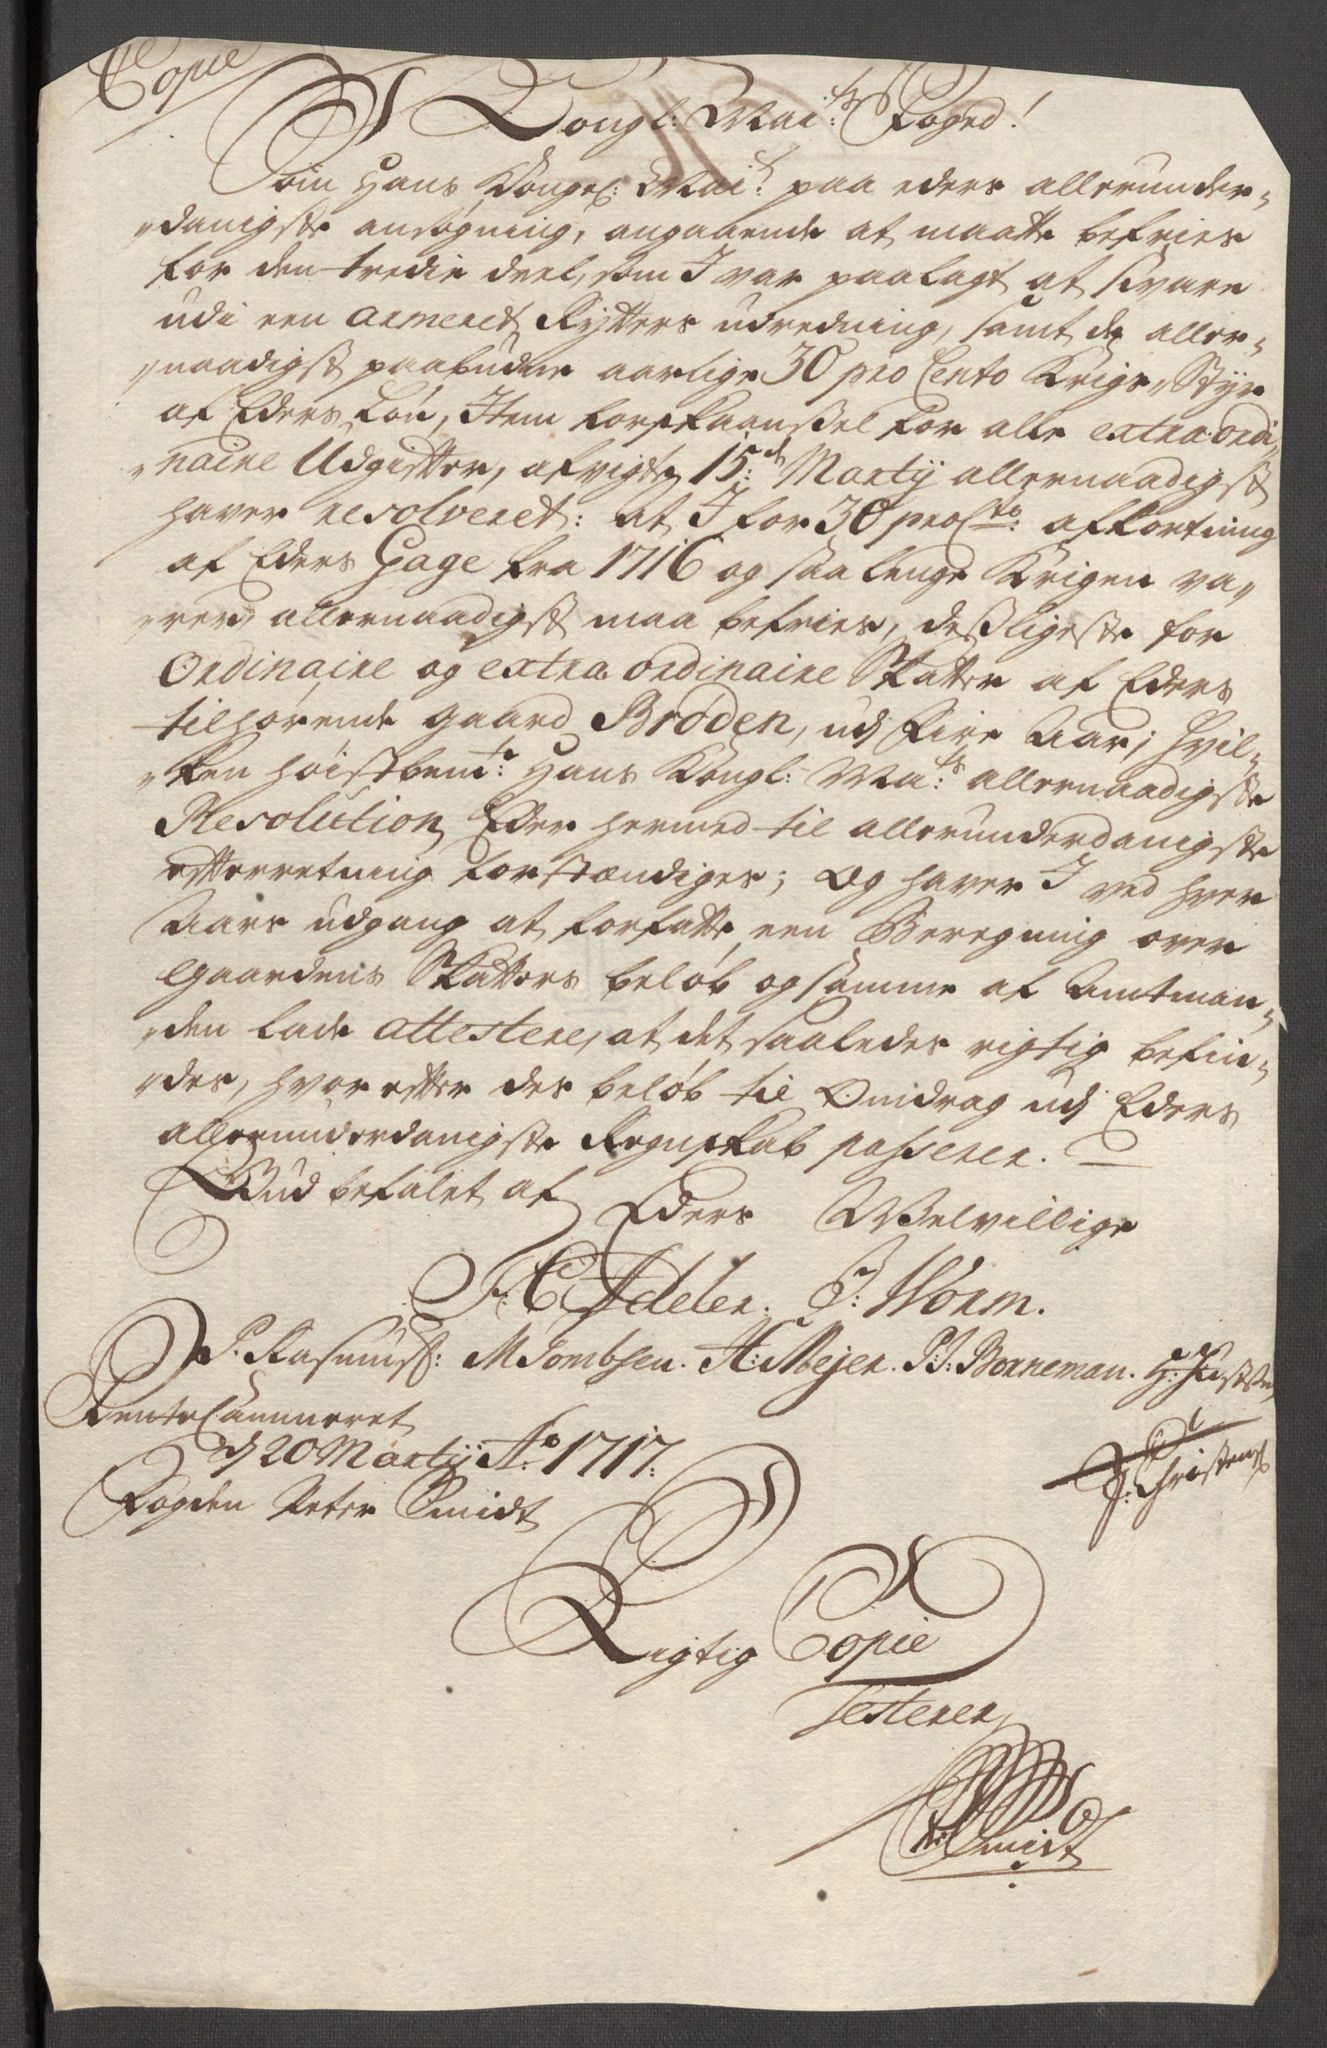 Copie
Kongl: Mai:ts Foged!
Som Hans Kongel: Mai:t paa eders allerunder-
danigste ansøgning, angaaende at maatte befries
for den tredie deel, som I var paalagt at svare
udi een armeret Rytters udredning, samt de aller-
naadigst paabudne aarlige 30 pro Cento Krigs Styr
af Eders Løn, Item forskaanssel for alle extra ordi-
naire Udgifter, afvigte 15:de Martij allernaadigst
haver resolveret: at I for 30 proCto: afkortning
af Eders Gage fra 1716 og saa lenge Krigen va-
rer, allernaadigst maa befries, desligeste for
Ordinaire og extra ordinaire Skatter af Eders
tilhørende gaard Brøden, udj Fire Aar; hvil-
ken høistbem:te Hans Kongl: Ma:ts allernaadigste
Resolution Eder hermed til allerunderdanigste
efterretning forstændiges; Og haver I ved hver
Aars udgang at forfatte een Beregning over
Gaardens Skatters beløb og samme af Amtman-
den lade attestere, at det saaledes rigtig befin-
des, hvor efter des beløb til Omdrag udj Eders
allerunderdanigste Regnskab passerer.
Gud befalet af
Eders Velvillige
F: C Adeler. J: Worm.
P. Rasmuss: M Tombsen. A: Mejer. P: J: Borneman. H:
Rente Cammeret
d 20 Martij Ao 1717.
J: Christens
Fogden Peter Smidt
Rigtig Copie
testerer
Smidt